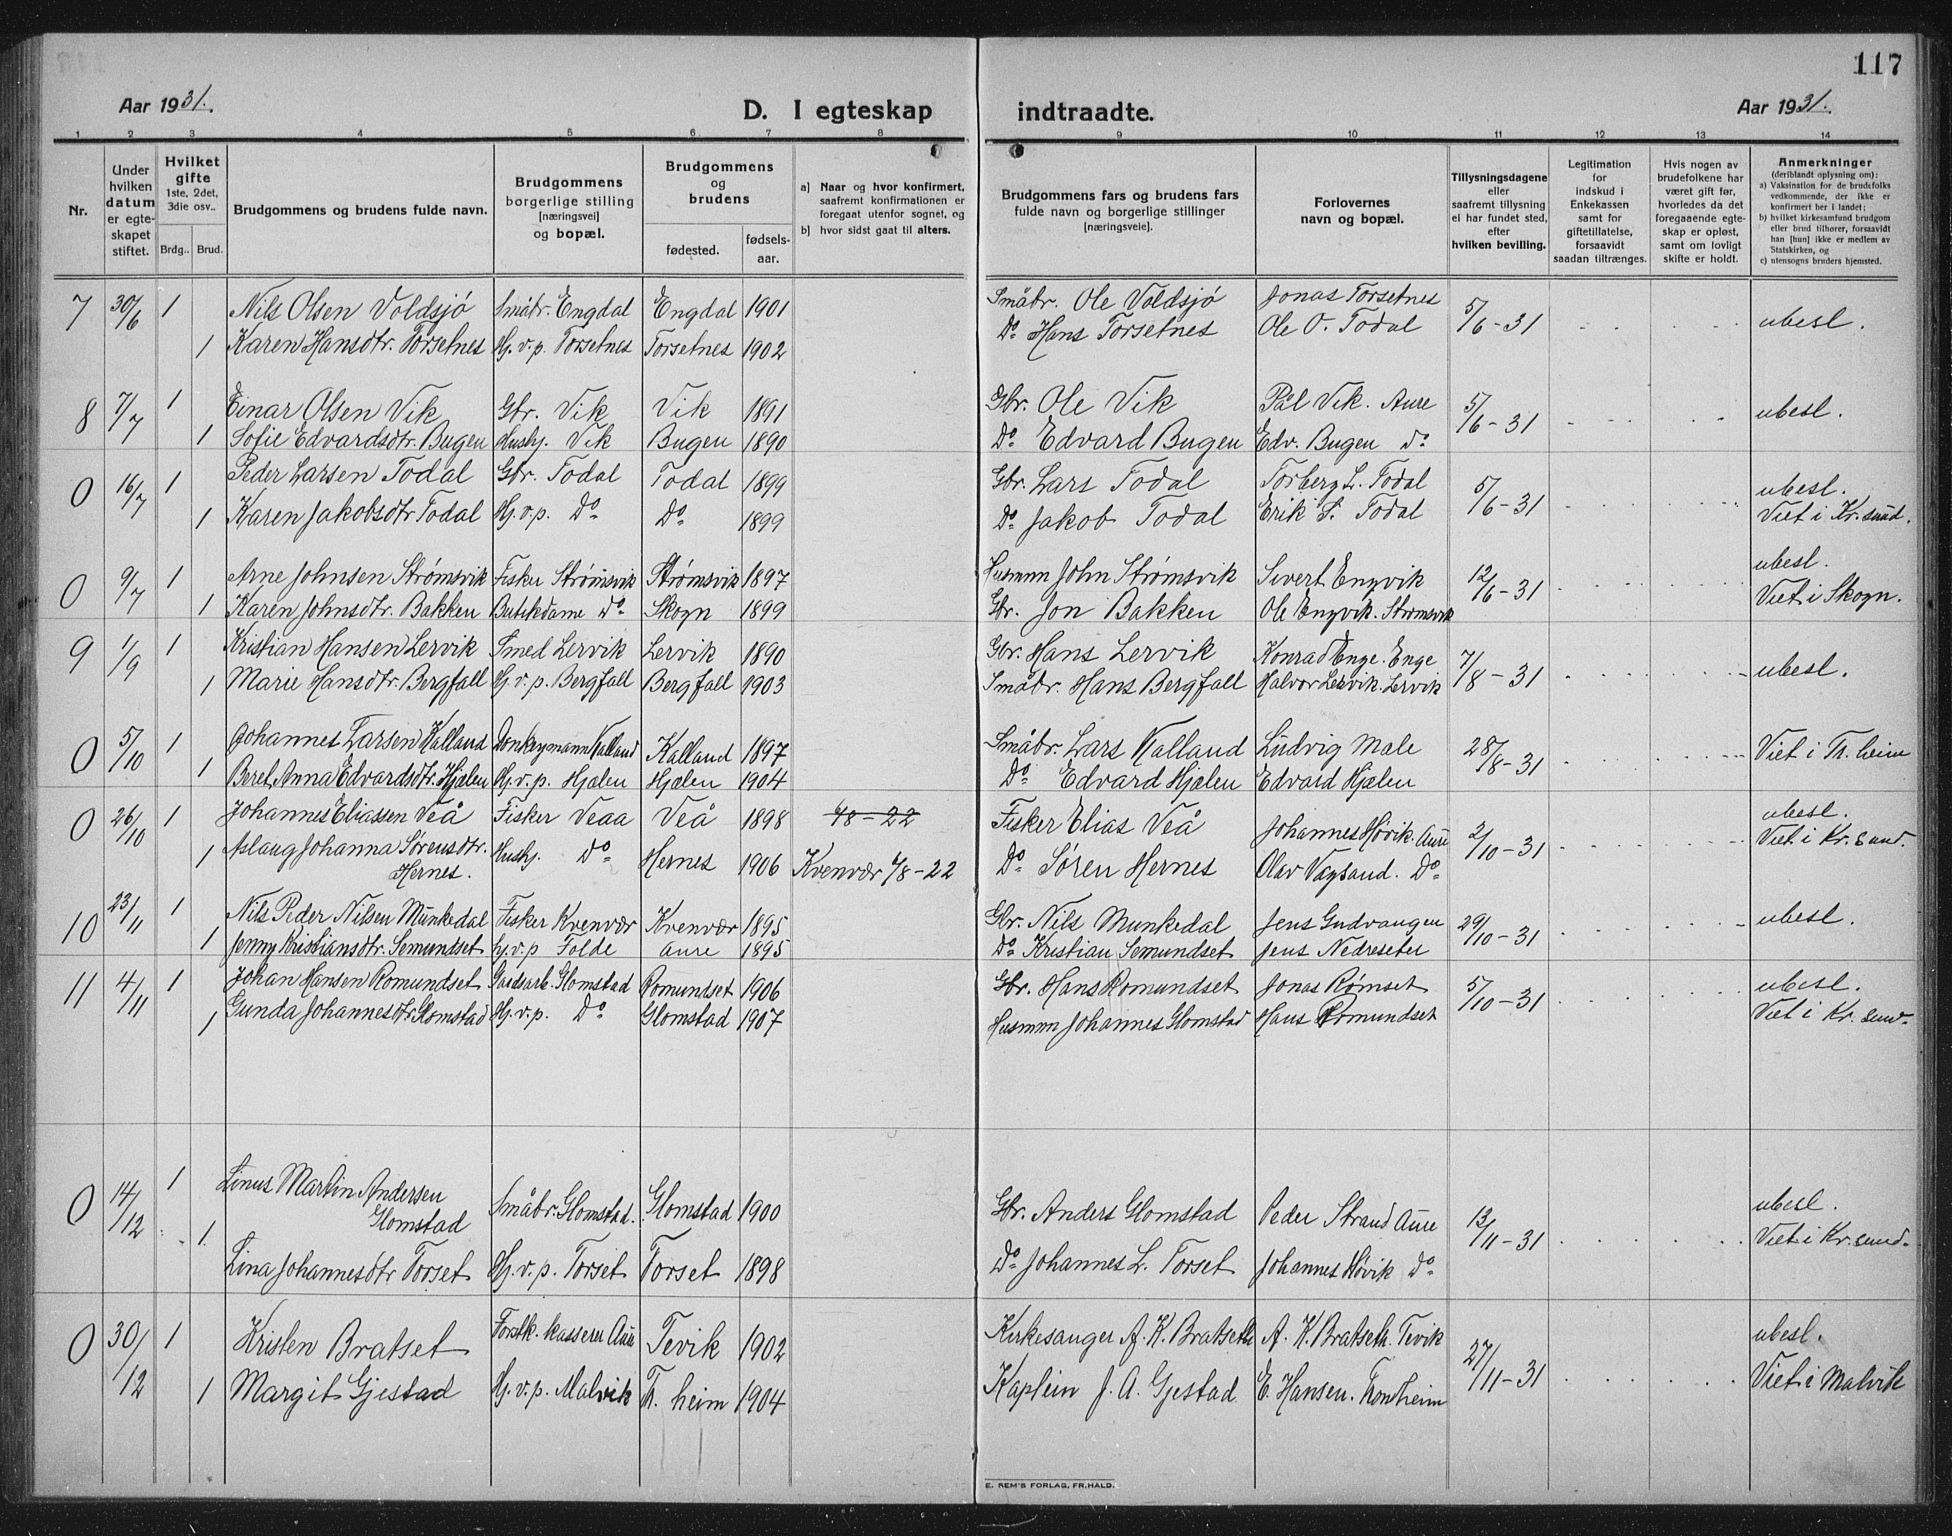 117
Aar 1931.
D. I egteskap indtraadte.
Aar 1931.
1 2 3 4 5 6 7 8 9 10 11 12 13 14
Nr.
Under hvilken datum er egteskapet stiftet.
Hvilket gifte 1ste, 2det, 3die osv..
Brdg.. Brud.
Brudgommens og brudens fulde navn.
Brudgommens borgerlige stilling [næringsvei] og bopæl.
Brudgommens og brudens
fødested.
fødselsaar.
a) Naar og hvor konfirmert, saafremt konfirmationen er foregaat utenfor sognet, og
b) hvor sidst gaat til alters.
Brudgommens fars og brudens fars fulde navn og borgerlige stillinger [næringsveie].
Forlovernes navn og bopæl.
Tillysningsdagene eller saafremt tillysning ei har fundet sted, efter hvilken bevilling.
Legitimation for indskud i Enkekassen samt for giftetillatelse, forsaavidt saadan tiltrænges.
Hvis nogen av brudefolkene har været gift før, hvorledes da det foregaaende egteskap er opløst, samt om lovligt skifte er holdt.
Anmerkninger (deriblandt oplysning om):
a) Vaksination for de brudefolks vedkommende, der ikke er konfirmert her i landet;
b) hvilket kirkesamfund brudgom eller brud tilhører, forsaavidt han [hun] ikke er medlem av Statskirken, og
c) utensogns bruders hjemsted.
7 30/6 1 Nils Olsen Voldsjö Småbr. Engdal Engdal 1901 Småbr. Ole Voldsjö Jonas Torsetnes 5/6-31 ubesl.
1 Karen Hansdtr. Torsetnes Hj. v. p. Torsetnes Torsetnes 1902 Do Hans Torsetnes Ole O. Todal
8 7/7 1 Einar Olsen Vik Gbr. Vik Vik 1891 Gbr. Ole Vik Pål Vik. Aure 5/6-31 ubesl.
1 Sofie Edvardsdtr. Bugen Hushj. Vik Bugen 1890 Do Edvard Bugen Edv. Bugen do
0 16/7 1 Peder Larsen Todal Gbr. Todal Todal 1899 Gbr. Lars Todal Torberg L. Todal 5/6-31 ubesl.
1 Karen Jakobsdtr Todal Hj. v. p. Do Do 1899 Do Jakob Todal Erik S. Todal Viet i Kr. sund.
0 9/7 1 Arne Johnsen Strømsvik Fisker Strømsvik Strømsvik 1897 Husmnn John Strømsvik Sivert Engvik 12/6-31 ubesl.
1 Karen Johnsdtr. Bakken Butikdame Do Skogn 1899 Gbr. Jon Bakken Ole Engvik. Strømsvik Viet i Skogn.
9 1/9 1 Kristian Hansen Lervik Smed Lervik Lervik 1890 Gbr. Hans Lervik Konrad Enge. Enge 7/8-31 ubesl.
1 Marie Hansdtr. Bergfall Hj. v. p. Bergfall Bergfall 1903 Småbr. Hans Bergfall Halvor Lervik. Lervik
0 5/10 1 Johannes Larsen Kalland Donkeymann Kalland Kalland 1897 Småbr. Lars Kalland Ludvig Male 28/8-31 Viet i Th. heim
1 Beret Anna Edvardsdtr. Hjælen Hj. v. p. Hjælen Hjælen 1904 Do Edvard Hjælen Edvard Hjælen
0 26/10 1 Johannes Eliassen Veå Fisker Veaa Veå 1898 Fisker Elias Veå Johannes Høvik. Aure 2/10-31 ubesl.
1 Aslaug Johanna Sørensdtr. Hernes. Hushj. Do Hernes 1906 Kvenvær 6/8-22 Do Søren Hernes Olav Vagsand. Do Viet i Kr. sund.
10 23/11 1 Nils Peder Nilsen Munkedal Fisker Kvenvær Kvenvær 1895 Gbr. Nils Munkedal Jens Gudvangen 29/10-31 ubesl.
1 Jenny Kristiansdtr. Semundset hj. v. p Folde Aure 1895 Do Kristian Semundset Jens Nedreseter
11 4/11 1 Johan Hansen Romundset Gårdsarb. Glomstad Romundset 1906 Gbr. Hans Romundset Jonas Rømset 5/10-31 ubesl.
1 Gunda Johannesdtr Glomstad Hj. v. p. Do Glomstad 1907 Husmnn Johannes Glomstad Hans Romundset Viet i Kr. sund.
0 14/12 1 Linus Martin Andersen Glomstad Småbr. Glomstad. Glomstad 1900 Gbr. Anders Glomstad Peder Strand Aure 13/11-31 ubesl.
1 Lina Johannesdtr Torset Hj. v. p. Torset Torset 1898 Do Johannes L. Torset Johannes Høvik Do Viet i Kr. sund.
0 30/12 1 Kristen Bratset Forstk. kasserer Aure Tevik 1902 Kirkesanger A. K. Bratseth A. K. Bratseth. Tevik 27/11-31 ubesl.
1 Margit Gjestad Hj. v. p. Malvik Th. heim 1904 Kaptein J. A. Gjestad E. Hansen. Trontheim Viet i Malvik
E. REM'S FORLAG, FR.HALD.